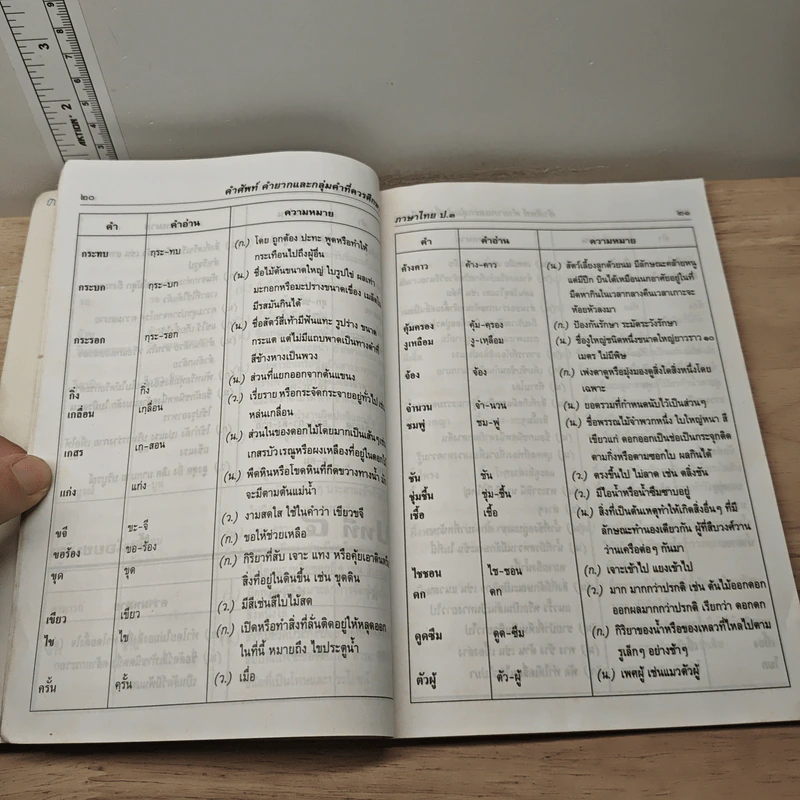 ACTION
๒๐ คำศัพท์ คำยากและกลุ่มคำที่ควรศึกษา
คำ คำอ่าน ความหมาย
กระทบ กฺระ-ทบ (ก.) โดย ถูกต้อง ปะทะ พูดหรือทำให้
กระเทือนไปถึงผู้อื่น
กระบก กฺระ-บก (น.) ชื่อไม้ต้นขนาดใหญ่ ใบรูปไข่ ผลเท่า
มะกอกหรือมะปรางขนาดเขื่อง เมล็ดใน
มีรสมันกินได้
กระรอก กฺระ-รอก (น.) ชื่อสัตว์สี่เท้ามีฟันแทะ รูปร่าง ขนาด
กระแต แต่ไม่มีแถบพาดเป็นทางดำที่
สีข้างหางเป็นพวง
กิ่ง กิ่ง (น.) ส่วนที่แยกออกจากต้นแขนง
เกลื่อน เกฺลื่อน (ว.) เรี่ยราย หรือกระจัดกระจายอยู่ทั่วไป เช่น
หล่นเกลื่อน
เกสร เก-สอน (น.) ส่วนในของดอกไม้โดยมากเป็นเส้นๆ
เกสรบัวเรณูหรือผงเหลืองที่อยู่ในดอกไม้
แก่ง แก่ง (น.) พืดหินหรือโขดหินที่กีดขวางทางน้ำ
จะมีตามต้นแม่น้ำ
ขจี ขะ-จี (ว.) งามสดใส ใช้ในคำว่า เขียวขจี
ขอร้อง ขอ-ร้อง (ก.) ขอให้ช่วยเหลือ
ขุด ขุด (ก.) กิริยาที่สับ เจาะ แทง หรือคุ้ยเอาดินหรือ
สิ่งที่อยู่ในดินขึ้น เช่น ขุดดิน
เขียว เขียว (ว.) มีสีเช่นสีใบไม้สด
ไข ไข (ก.) เปิดหรือทำสิ่งที่ลั่นติดอยู่ให้หลุดออก
ในที่นี้ หมายถึง ไขประตูน้ำ
ครั้น คฺรั้น (ว.) เมื่อ
ภาษาไทย ป.๓ ๒๑
คำ คำอ่าน ความหมาย
ค้างคาว ค้าง-คาว (น.) สัตว์เลี้ยงลูกด้วยนม มีลักษณะคล้ายหนู
แต่มีปีก บินได้เหมือนนกอาศัยอยู่ในที่
มืดหากินในเวลากลางคืนเวลาเกาะจะ
ห้อยหัวลงมา
คุ้มครอง คุ้ม-คฺรอง (ก.) ป้องกันรักษา ระมัดระวังรักษา
งูเหลือม งู-เหฺลือม (น.) ชื่องูใหญ่ชนิดหนึ่งขนาดใหญ่ยาวราว ๑๐
เมตร ไม่มีพิษ
จ้อง จ้อง (ก.) เพ่งตาดูหรือมุ่งมองดูสิ่งใดสิ่งหนึ่งโดย
เฉพาะ
จำนวน จำ-นวน (น.) ยอดรวมที่กำหนดนับไว้เป็นส่วนๆ
ชมพู่ ชม-พู่ (น.) ชื่อพรรณไม้จำพวกหนึ่ง ใบใหญ่หนา สี
เขียวแก่ ดอกออกเป็นช่อเป็นกระจุกติด
ตามกิ่งหรือตามซอกใบ ผลกินได้
ชัน ชัน (ว.) ตรงขึ้นไป ไม่ลาด เช่น ตลิ่งชัน
ชุ่มชื้น ชุ่ม-ชื้น (ว.) มีไอน้ำหรือน้ำซึมซาบอยู่
เชื้อ เชื้อ (น.) สิ่งที่เป็นต้นเหตุทำให้เกิดสิ่งอื่นๆ ที่มี
ลักษณะทำนองเดียวกัน ผู้ที่สืบวงศ์วาน
ว่านเครือต่อๆ กันมา
ไชชอน ไช-ชอน (ก.) เจาะเข้าไป แยงเข้าไป
ดก ดก (ว.) มาก มากกว่าปรกติ เช่น ต้นไม้ออกดอก
ออกผลมากกว่าปรกติ เรียกว่า ดอกดก
ดูดซึม ดูด-ซึม (ก.) กิริยาของน้ำหรือของเหลวที่ไหลไปตาม
รูเล็กๆ อย่างช้าๆ
ตัวผู้ ตัว-ผู้ (น.) เพศผู้ เช่นแมวตัวผู้